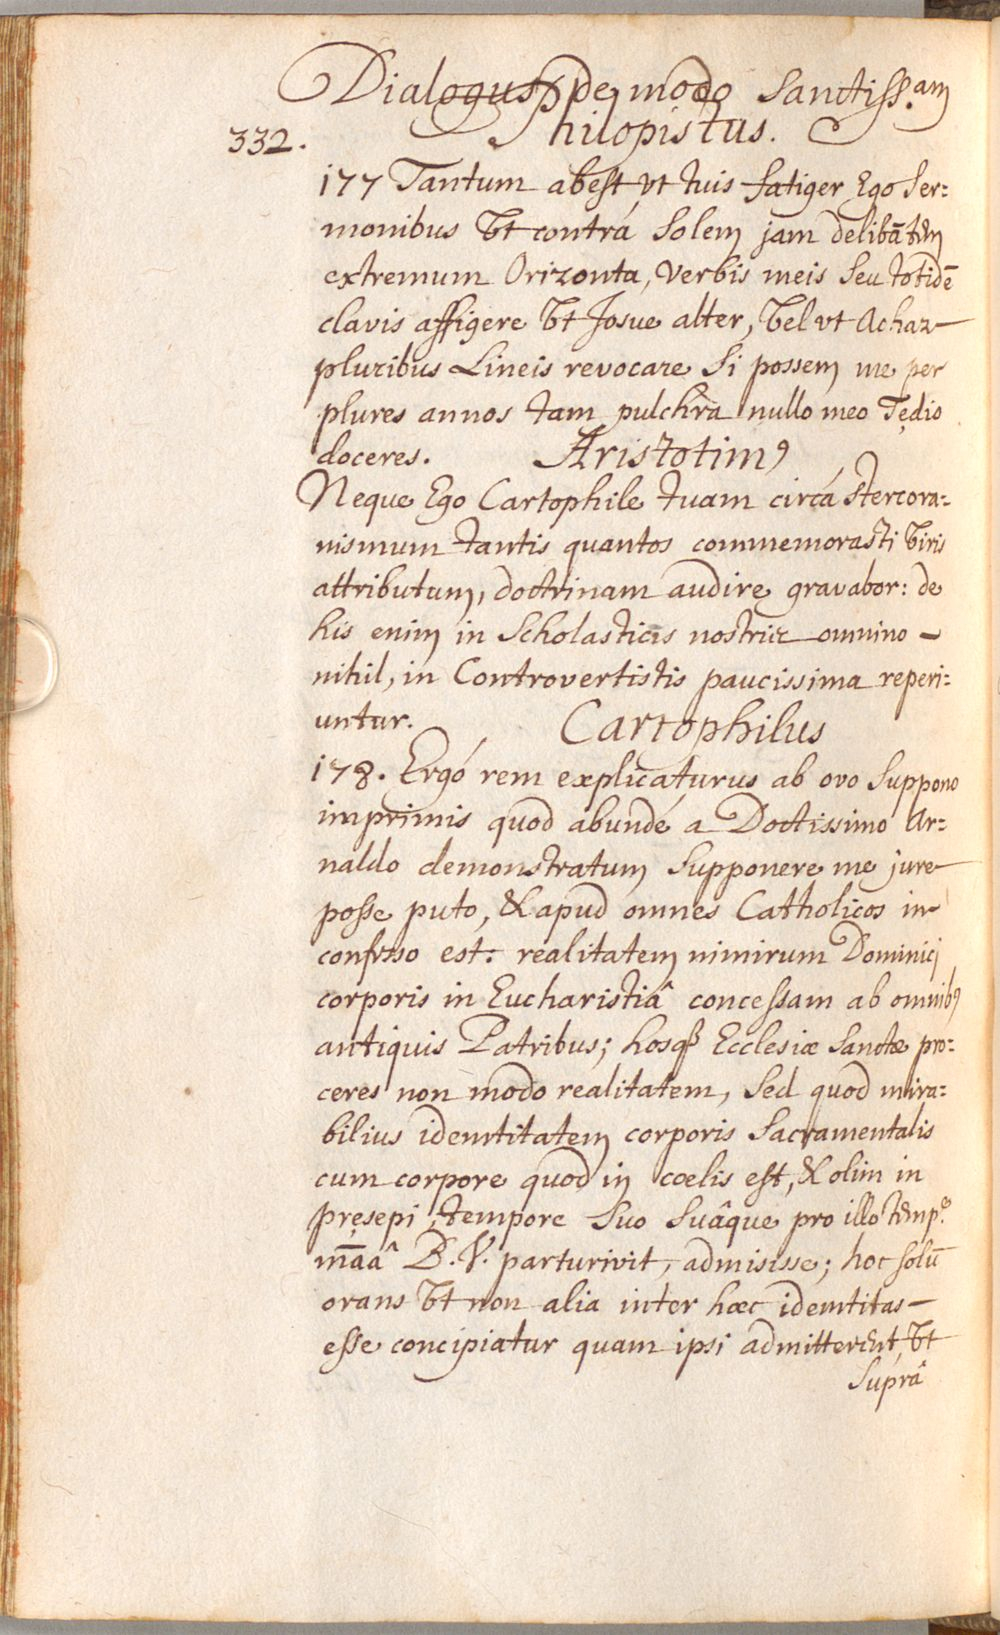 Dialogus de modo Sanctiss.am
332. Philopistus.
177 Tantum abest vt tuis fatiger Ego Ser=
monibus Vt contrá Solem jam delibātem
extremum Orizonta, Verbis meis Seu totidē
clavis affigere Vt Josue alter, Vel vt Achaz
pluribus Lineis revocare Si possem me per
plures annos tam pulchra nullo meo Tędio
doceres. Aristotim9
Neque Ego Cartophile tuam circá Stercora=
nismum tantis quantos commemorasti Viris
attributum, doctrinam audire gravabor: de
his enim in Scholasticis nostris omnino
nihil, in Controvertistis paucissima reperi=
untur. Cartophilus
178. Ergó rem explicaturus ab ovo Suppono
imprimis quod abundé a Doctissimo Ar=
naldo demonstratum Supponere me jure
posse puto, & apud omnes Catholicos in
confesso est: realitatem nimirum Dominici
corporis in Eucharistiâ concessam ab omnib9
antiquis Patribus; hosq3 Ecclesiæ Sanctæ pro=
ceres non modo realitatem, Sed quod mira=
bilius idemtitatem corporis Sacramentalis
cum corpore quod in cœlis est, & olim in
pręsepi, tempore Suo Suâque pro illo temp.e
B. V. parturivit, admisisse; hoc solū
orans Vt non alia inter hæc idemtitas
esse concipiatur quam ipsi admitterent, Vt
Suprâ